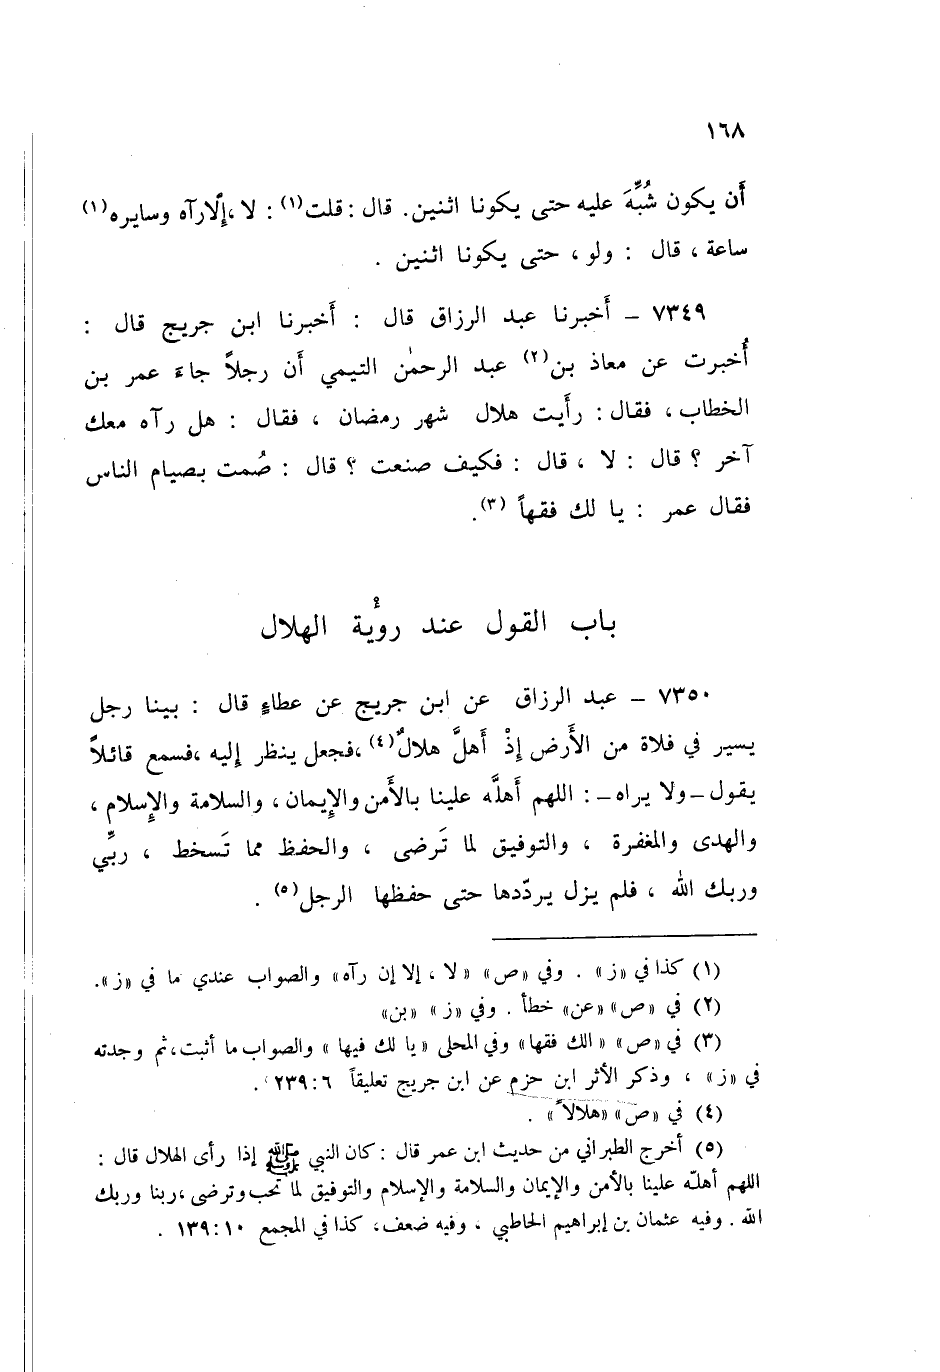 ١٦٨
أَن يكون شُبِّهَ عليه حتى يكونا اثنين. قال : قلت(١) : لا ، إلّا رآه وسايره(١)
ساعة ، قال : ولو ، حتى يكونا اثنين .
٧٣٤٩ – أَخبرنا عبد الرزاق قال : أَخبرنا ابن جريج قال :
أُخبرت عن معاذ بن(٢) عبد الرحمٰن التيمي أَن رجلاً جاءَ عمر بن
الخطاب ، فقال : رأَيت هلال شهر رمضان ، فقال : هل رآه معك
آخر ؟ قال : لا ، قال : فكيف صنعت ؟ قال : صُمت بصيام الناس
فقال عمر : يا لك فقهاً (٣).
باب القول عند رؤْية الهلال
٧٣٥٠ – عبد الرزاق عن ابن جريج عن عطاءٍ قال : بينا رجل
يسير في فلاة من الأَرض إِذْ أَهلَّ هلالٌ(٤) ،فجعل ينظر إِليه ،فسمع قائلاً
يقول – ولا يراه – : اللهم أَهلَّه علينا بالأَمن والإِيمان ، والسلامة والإِسلام ،
والهدى والمغفرة ، والتوفيق لما تَرضى ، والحفظ مما تَسخط ، ربِّي
وربك الله ، فلم يزل يردّدها حتى حفظها الرجل(٥) .
(١) كذا في «ز» . وفي «ص» «لا ، إلا إن رآه» والصواب عندي ما في «ز».
(٢) في «ص» «عن» خطأ . وفي «ز» «بن»
(٣) في «ص» «الك فقها» وفي المحلى «يا لك فيها» والصواب ما أثبت، ثم وجدته
في «ز» ، وذكر الأثر ابن حزم عن ابن جريج تعليقاً ٦ : ٢٣٩ .
(٤) في «ص» «هلالاً» .
(٥) أخرج الطبراني من حديث ابن عمر قال : كان النبي ﷺ إذا رأى الهلال قال :
اللهم أهلّه علينا بالأمن والإيمان والسلامة والإسلام والتوفيق لما تحب وترضى ،ربنا وربك
الله . وفيه عثمان بن إبراهيم الحاطبي ، وفيه ضعف، كذا في المجمع ١٠ : ١٣٩ .